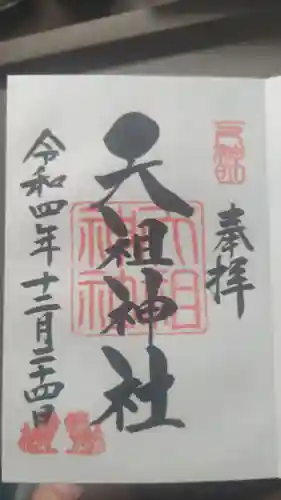 奉拝
天祖神社
天祖神社
令和四年十二月二十四日